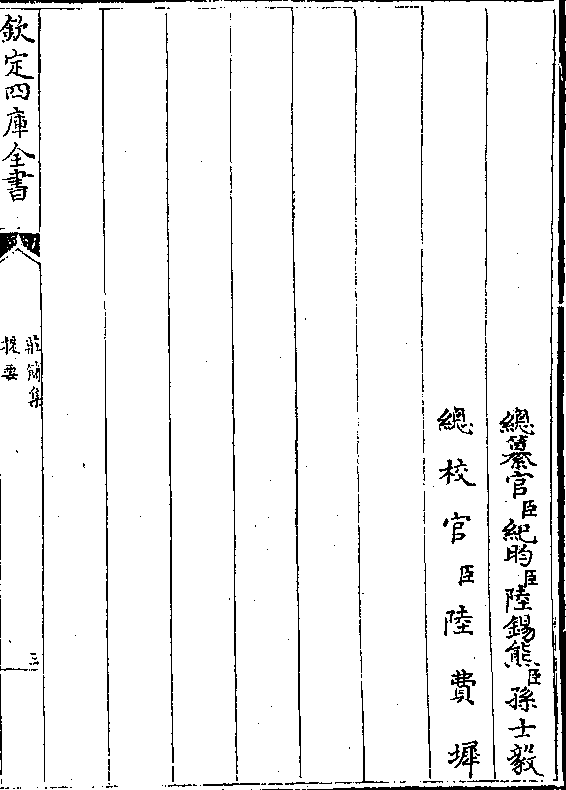 總纂官臣紀昀臣陸錫熊臣孫士毅
總校官臣陸費墀
欽定四庫全書
莊簡集
提要
三